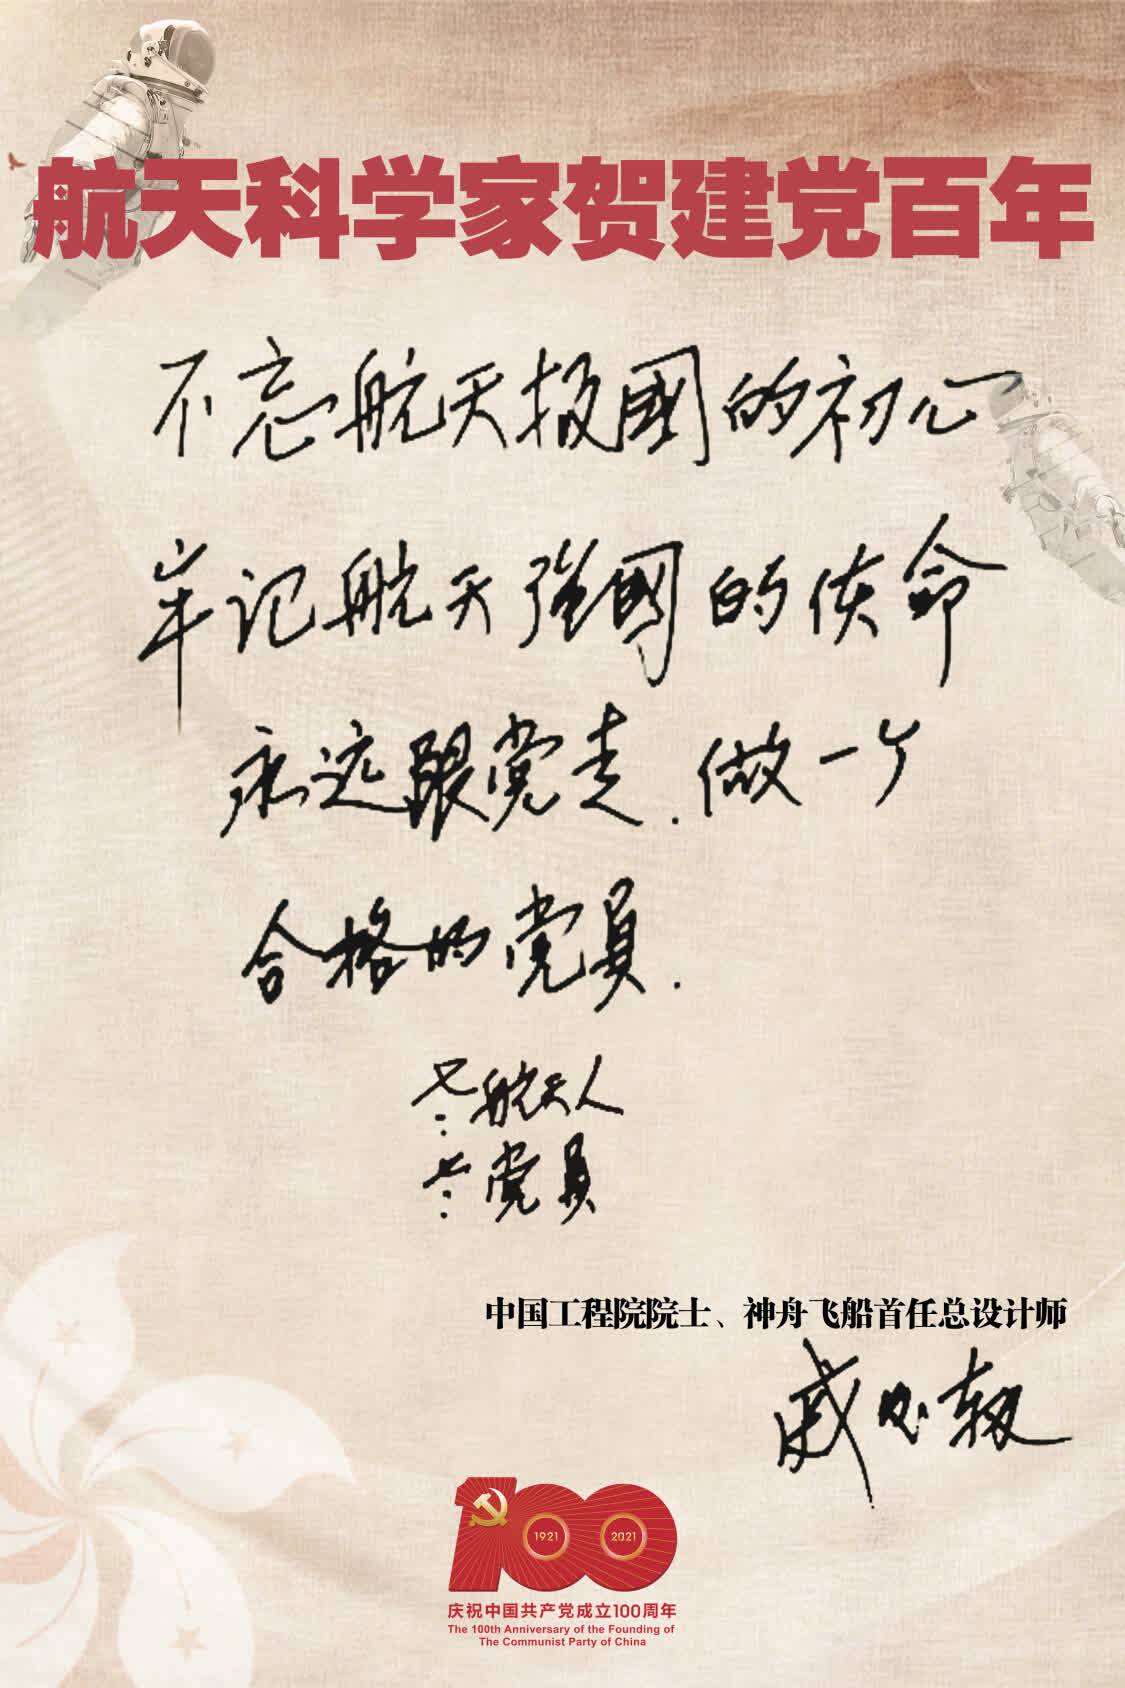 航天科学家贺建党百年
不忘航天报國的初心
牢记航天强國的使命
永远跟党走.做一个
合格的党员.
老航天人
老党员
中国工程院院士、神舟飞船首任总设计师
戚发轫
1921
2021
庆祝中国共产党成立100周年
The 100th Anniversary of the Founding of
The Communist Party of China